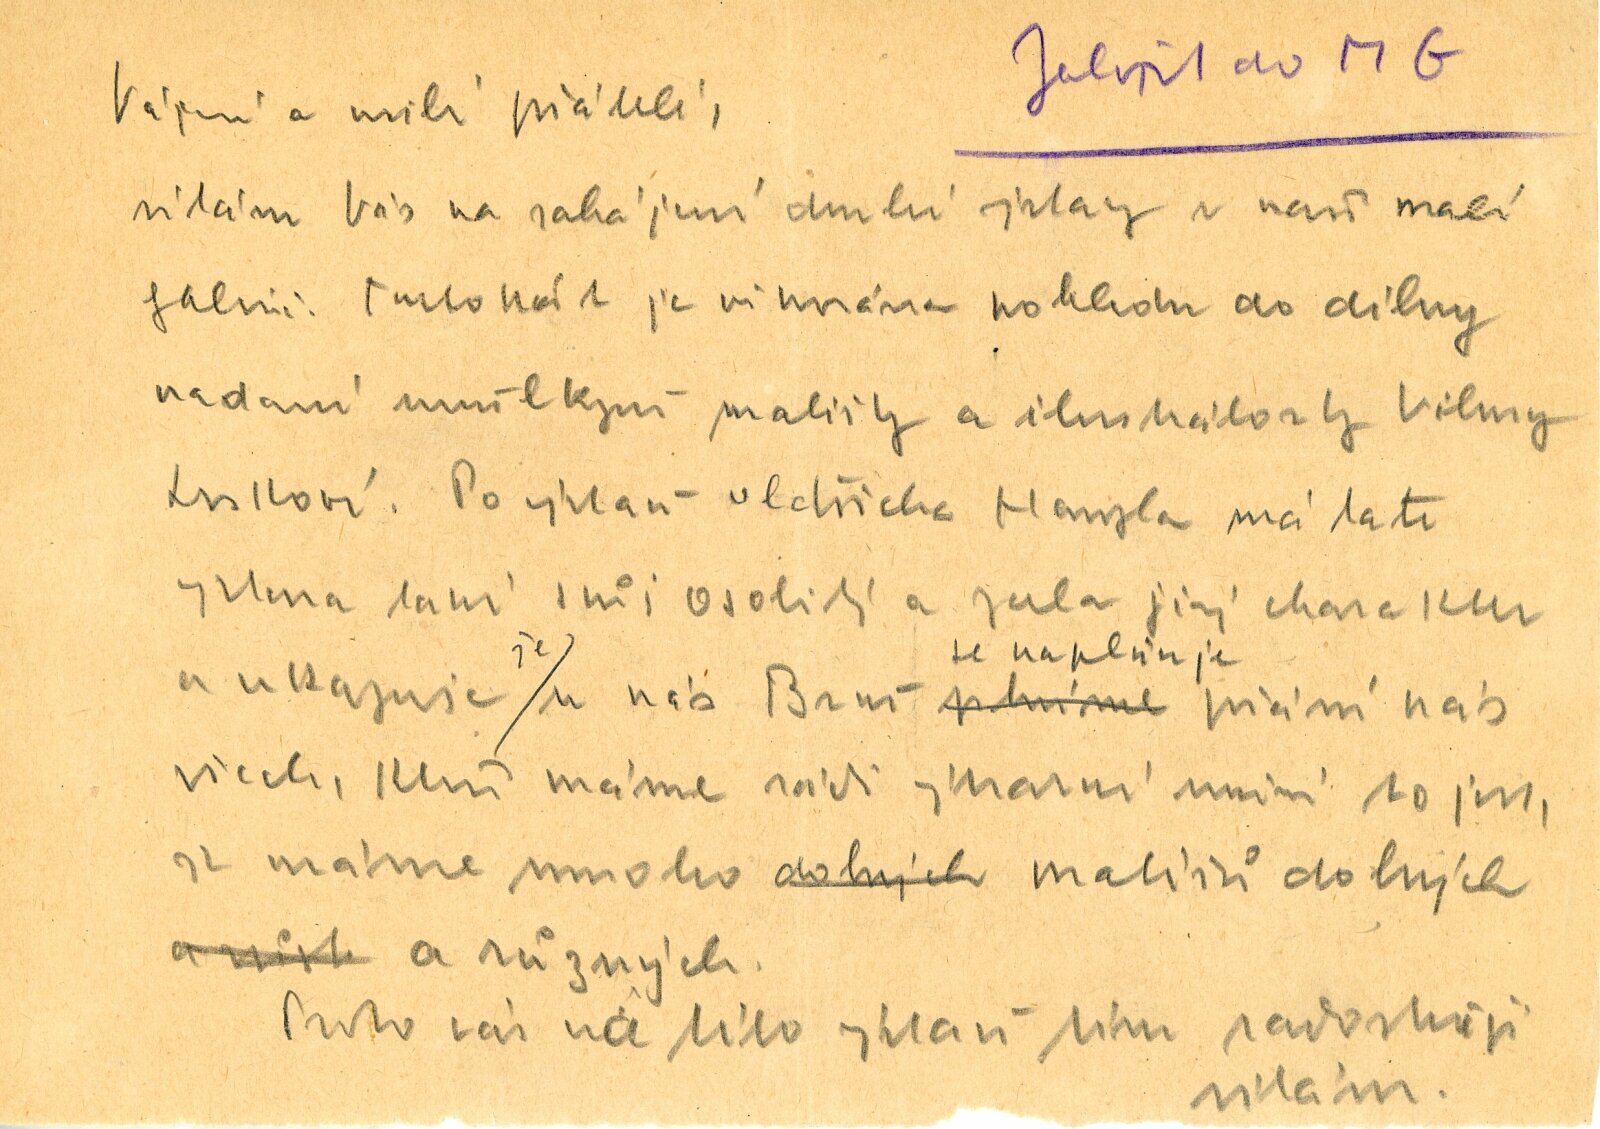 Založit do M G
Vážení a milí přátelé,
vítám Vás na zahájení druhé výstavy v naší malé
galerii. Tentokrát je věnována pohledu do dílny
nadané umělkyně malířky a ilustrátorky Vilmy
Po výstavě Oldřicha má tato
výstava samé svůj osobitý a zcela jiný charakter
a ukazuje je / u nás Brně plníme se naplňuje přání nás
všech, kteří máme rádi výtvarné umění to jest,
že máme mnoho dobrých malířů dobrých
a různých.
Proto vás na této výstavě tím radostněji
vítám.